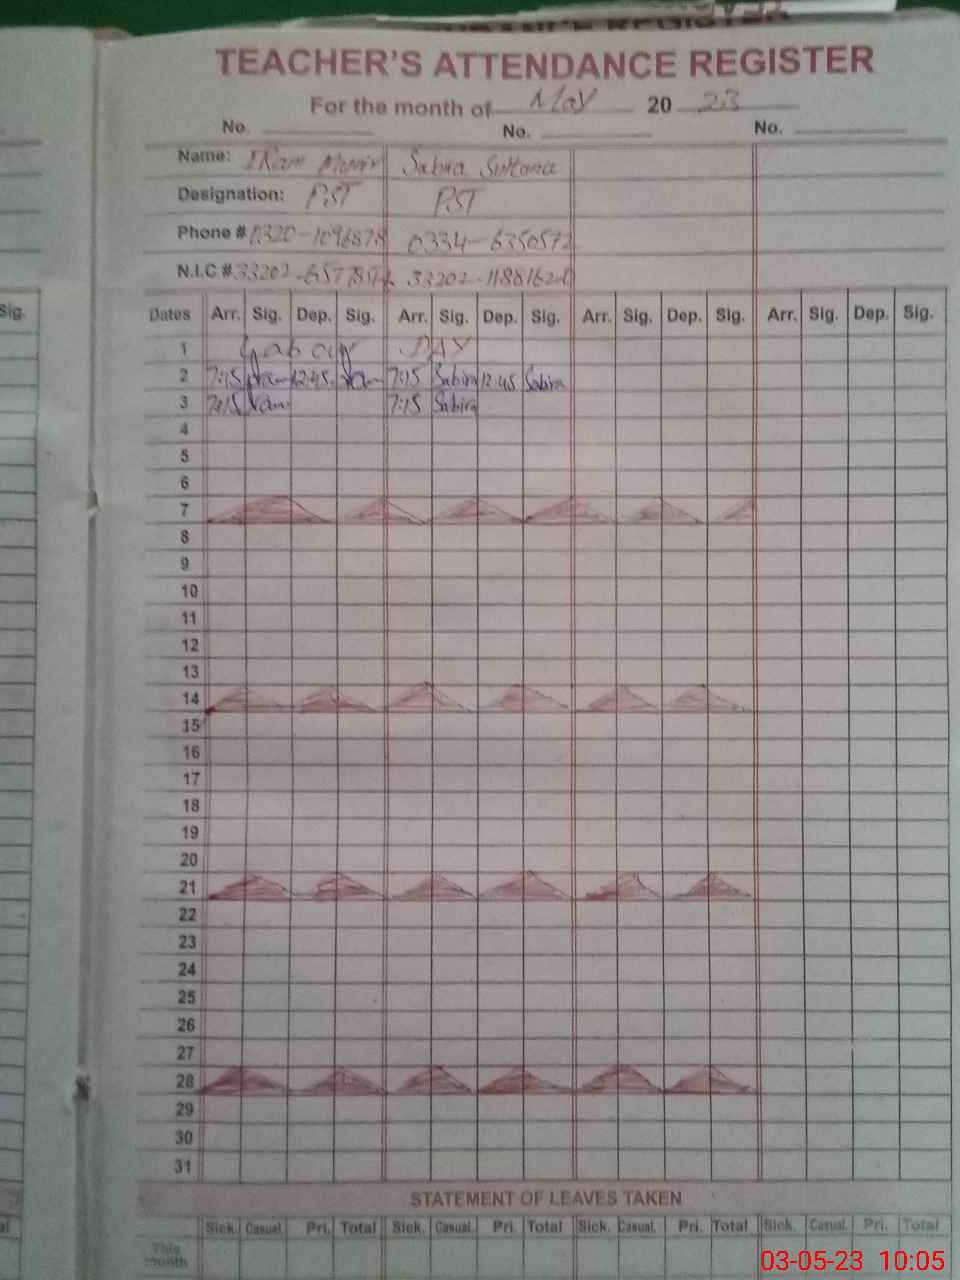 TEACHER'S ATTENDANCE REGISTER
For the month of May 20 23
No. No. No.
Name: IKram Munir Sabira Sultana
Designation: PST PST
Phone # 0320-1096878 0334-6350572
N.I.C # 33202 33202-1188162-0
Sig.
Dates Arr. Sig. Dep. Sig. Arr. Sig. Dep. Sig. Arr. Sig. Dep. Sig. Arr. Sig. Dep. Sig.
1 Labour DAY
2 7:15 12:45 7:15 Sabira 12:45 Sabira
3 7:15 7:15 Sabira
4
5
6
7
8
9
10
11
12
13
14
15
16
17
18
19
20
21
22
23
24
25
26
27
28
29
30
31
STATEMENT OF LEAVES TAKEN
Sick. Casual. Pri. Total Sick. Casual. Pri. Total Sick. Casual. Pri. Total Sick. Casual. Pri. Total
This
month
03-05-23 10:05